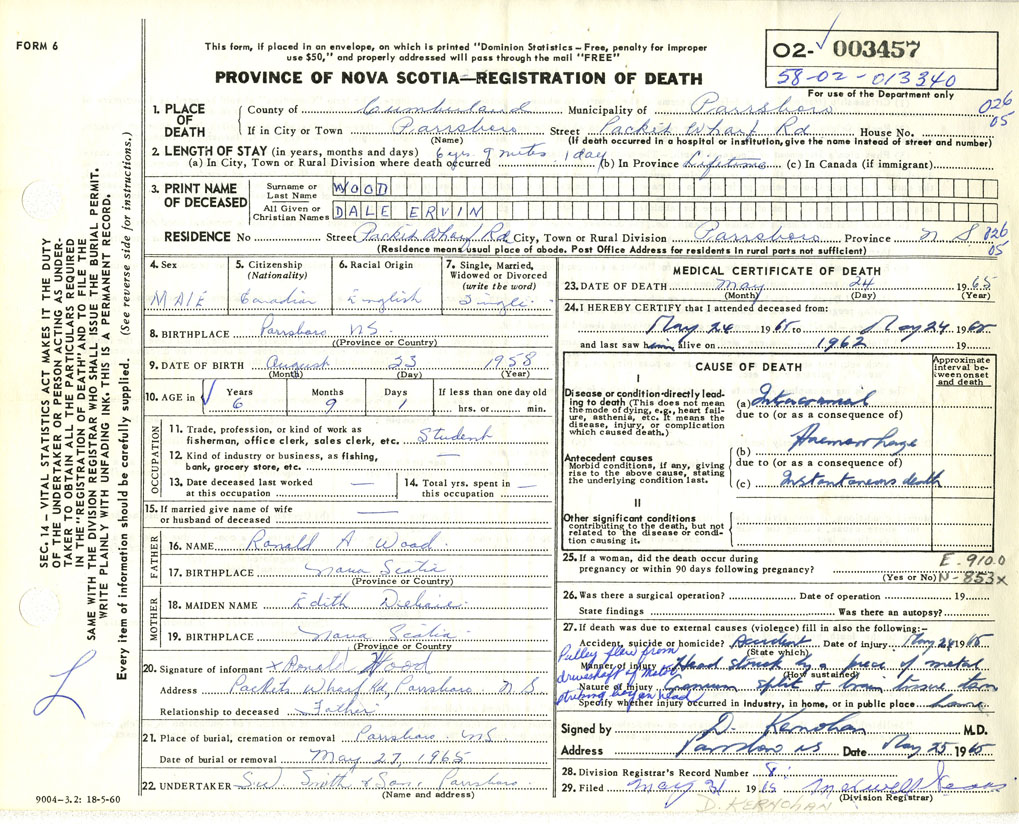 FORM 6
This form, if placed in an envelope, on which is printed "Dominion Statistics – Free, penalty for improper
use $50," and properly addressed will pass through the mail "FREE"
PROVINCE OF NOVA SCOTIA—REGISTRATION OF DEATH
02- 003457
58-02-013340
For use of the Department only
1. PLACE OF DEATH
County of Cumberland Municipality of Parrsboro 026
05
If in City or Town Parrsboro Street Packet Wharf Rd House No.
(Name) (If death occurred in a hospital or institution, give the name instead of street and number)
2. LENGTH OF STAY (in years, months and days) 6 yrs 9 mths 1 day
(a) In City, Town or Rural Division where death occurred (b) In Province Lifetime (c) In Canada (if immigrant)
3. PRINT NAME OF DECEASED
Surname or Last Name WOOD
All Given or Christian Names DALE ERVIN
RESIDENCE No Street Packet Wharf Rd City, Town or Rural Division Parrsboro Province N S 026
05
(Residence means usual place of abode. Post Office Address for residents in rural parts not sufficient)
4. Sex
MALE
5. Citizenship
(Nationality)
Canadian
6. Racial Origin
English
7. Single, Married,
Widowed or Divorced
(write the word)
Single
8. BIRTHPLACE Parrsboro NS
((Province or Country)
9. DATE OF BIRTH August 23 1958
(Month) (Day) (Year)
10. AGE in
Years Months Days If less than one day old
6 9 1 hrs. or min.
OCCUPATION
11. Trade, profession, or kind of work as
fisherman, office clerk, sales clerk, etc. Student
12. Kind of industry or business, as fishing,
bank, grocery store, etc. —
13. Date deceased last worked
at this occupation —
14. Total yrs. spent in
this occupation —
15. If married give name of wife
or husband of deceased —
FATHER
16. NAME Ronald A Wood
17. BIRTHPLACE Nova Scotia
(Province or Country)
MOTHER
18. MAIDEN NAME Edith
19. BIRTHPLACE Nova Scotia
(Province or Country)
20. Signature of informant x Ronald Wood
Address Packets Wharf Rd, Parrsboro N S
Relationship to deceased Father
21. Place of burial, cremation or removal Parrsboro NS
Date of burial or removal May 27, 1965
22. UNDERTAKER Smith & Son, Parrsboro
(Name and address)
9004-3.2: 18-5-60
MEDICAL CERTIFICATE OF DEATH
23. DATE OF DEATH May 24 1965
(Month) (Day) (Year)
24. I HEREBY CERTIFY that I attended deceased from:
May 24 1965 to May 24 1965
and last saw him alive on 1962 19
CAUSE OF DEATH
Approximate
interval be-
tween onset
and death
I
Disease or condition directly lead-
ing to death (This does not mean
the mode of dying, e.g., heart fail-
ure, asthenia, etc. It means the
disease, injury, or complication
which caused death.)
(a) Intracranial
due to (or as a consequence of)
Haemorrhage
Antecedent causes
Morbid conditions, if any, giving
rise to the above cause, stating
the underlying condition last.
(b)
due to (or as a consequence of)
(c) Instantaneous death
II
Other significant conditions
contributing to the death, but not
related to the disease or condi-
tion causing it.
25. If a woman, did the death occur during
pregnancy or within 90 days following pregnancy?
(Yes or No)
E. 910.0
N-853x
26. Was there a surgical operation? Date of operation 19
State findings Was there an autopsy?
27. If death was due to external causes (violence) fill in also the following:–
Accident, suicide or homicide? Accident Date of injury May 24 1965
(State which)
Pulley flew from
driveshaft of motor
striking boy on head
Manner of injury Head struck by a piece of metal
(How sustained)
Nature of Injury Cranium split & brain tissue torn
Specify whether injury occurred in Industry, in home, or in public place home
Signed by D. Kernohan M.D.
Address Parrsboro NS Date May 25 1965
28. Division Registrar's Record Number 8
29. Filed May 31 19
(Division Registrar)
D. KERNOHAN
SEC. 14 – VITAL STATISTICS ACT MAKES IT THE DUTY
OF THE UNDERTAKER OR PERSON ACTING AS UNDER-
TAKER TO OBTAIN ALL THE PARTICULARS REQUIRED
IN THE "REGISTRATION OF DEATH" AND TO FILE THE
SAME WITH THE DIVISION REGISTRAR WHO SHALL ISSUE THE BURIAL PERMIT.
WRITE PLAINLY WITH UNFADING INK. THIS IS A PERMANENT RECORD.
Every item of information should be carefully supplied. (See reverse side for instructions.)